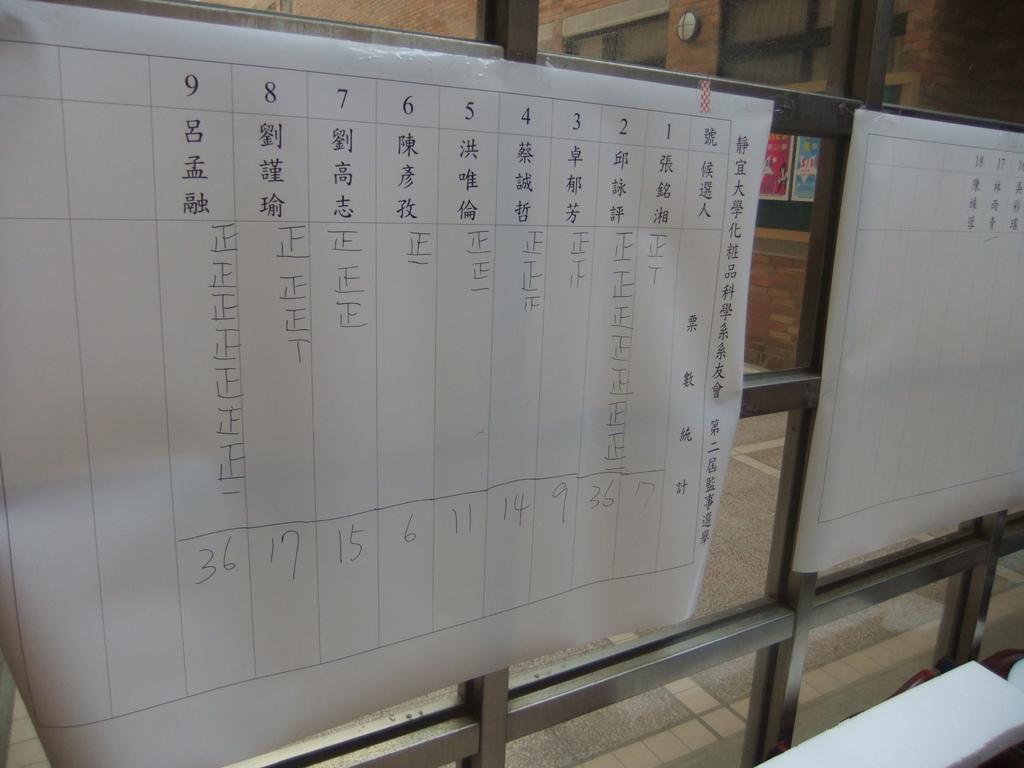 靜宜大學化粧品科學系系友會 第二屆監事選舉
號 候選人 票數統計
1 張銘湘 正丅 7
2 邱詠評 正正正正正正正一 36
3 卓郁芳 正 9
4 蔡誠哲 正正 14
5 洪唯倫 正正一 11
6 陳彥孜 正一 6
7 劉高志 正正正 15
8 劉謹瑜 正正正丅 17
9 呂孟融 正正正正正正正一 36
16 吳彩
17 林雨青 一
18 陳